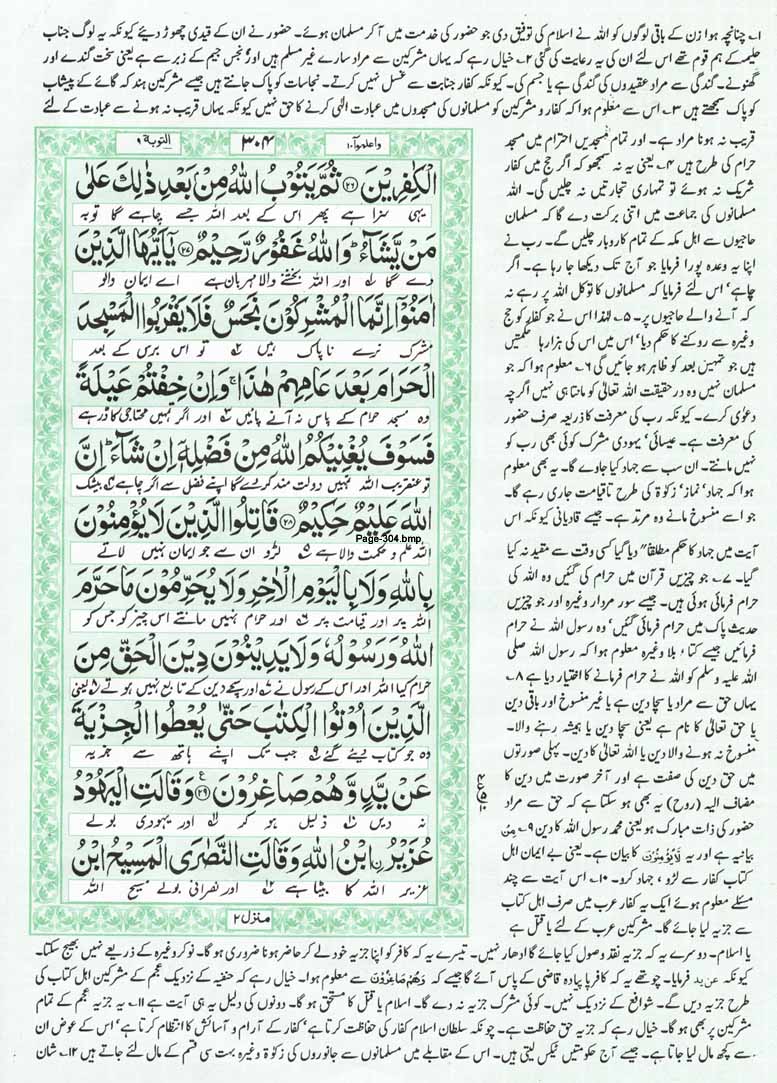 ۱۔ چنانچہ ہوازن کے باقی لوگوں کو اللہ نے اسلام کی توفیق دی جو حضور کی خدمت میں آ کر مسلمان ہوئے۔ حضور نے ان کے قیدی چھوڑ دیئے کیونکہ یہ لوگ جناب
حلیمہ کے ہم قوم تھے اس لئے ان کی یہ رعایت کی گئی ۲۔ خیال رہے کہ یہاں مشرکین سے مراد سارے غیر مسلم ہیں اور نجس جیم کے زبر سے ہے یعنی سخت گندے اور
گھنونے۔ گندگی سے مراد عقیدوں کی گندگی ہے یا جسم کی۔ کیونکہ کفار جنابت سے غسل نہیں کرتے۔ نجاسات کو پاک جانتے ہیں جیسے مشرکین ہند کہ گائے کے پیشاب
کو پاک سمجھتے ہیں ۳۔ اس سے معلوم ہوا کہ کفار و مشرکین کو مسلمانوں کی مسجدوں میں عبادت الٰہی کرنے کا حق نہیں کیونکہ یہاں قریب نہ ہونے سے عبادت کے لئے
واعلموا ۱۰
۳۰۴
التوبة ۹
الْكٰفِرِيْنَ ﴿۲۶﴾ ثُمَّ يَتُوْبُ اللّٰهُ مِنْۢ بَعْدِ ذٰلِكَ عَلٰى
یہی سزا ہے پھر اس کے بعد اللہ جسے چاہے گا توبہ
مَنْ يَّشَآءُ ؕ وَاللّٰهُ غَفُوْرٌ رَّحِيْمٌ ﴿۲۷﴾ يٰۤاَيُّهَا الَّذِيْنَ
دے گا ۱ اور اللہ بخشنے والا مہربان ہے اے ایمان والو
اٰمَنُوْۤا اِنَّمَا الْمُشْرِكُوْنَ نَجَسٌ فَلَا يَقْرَبُوا الْمَسْجِدَ
مشرک نرے ناپاک ہیں ۲ تو اس برس کے بعد
الْحَرَامَ بَعْدَ عَامِهِمْ هٰذَا ۚ وَاِنْ خِفْتُمْ عَيْلَةً
وہ مسجد حرام کے پاس نہ آنے پائیں ۳ اور اگر تمہیں محتاجی کا ڈر ہے
فَسَوْفَ يُغْنِيْكُمُ اللّٰهُ مِنْ فَضْلِهٖۤ اِنْ شَآءَ ؕ اِنَّ
تو عنقریب اللہ تمہیں دولت مند کر دے گا اپنے فضل سے اگر چاہے ۵ بیشک
اللّٰهَ عَلِيْمٌ حَكِيْمٌ ﴿۲۸﴾ قَاتِلُوا الَّذِيْنَ لَا يُؤْمِنُوْنَ
Page-304.bmp
اللہ علم و حکمت والا ہے لڑو ان سے جو ایمان نہیں لاتے
بِاللّٰهِ وَلَا بِالْيَوْمِ الْاٰخِرِ وَلَا يُحَرِّمُوْنَ مَا حَرَّمَ
اللہ پر اور قیامت پر ۶ اور حرام نہیں مانتے اس چیز کو جس کو
اللّٰهُ وَرَسُوْلُهٗ وَلَا يَدِيْنُوْنَ دِيْنَ الْحَقِّ مِنَ
حرام کیا اللہ اور اس کے رسول نے ۷ اور سچے دین کے تابع نہیں ہوتے ۸ یعنی
الَّذِيْنَ اُوْتُوا الْكِتٰبَ حَتّٰى يُعْطُوا الْجِزْيَةَ
وہ جو کتاب دیئے گئے ۹ جب تک اپنے ہاتھ سے جزیہ
عَنْ يَّدٍ وَّهُمْ صَاغِرُوْنَ ﴿۲۹﴾ ع وَقَالَتِ الْيَهُوْدُ
نہ دیں ذلیل ہو کر اور یہودی بولے
عُزَيْرُ ۨابْنُ اللّٰهِ وَقَالَتِ النَّصٰرَى الْمَسِيْحُ ابْنُ
عزیر اللہ کا بیٹا ہے اور نصرانی بولے مسیح اللہ
منزل ۲
قریب نہ ہونا مراد ہے۔ اور تمام مسجدیں احترام میں مسجد
حرام کی طرح ہیں ۴۔ یعنی یہ نہ سمجھو کہ اگر حج میں کفار
شریک نہ ہوئے تو تمہاری تجارتیں نہ چلیں گی۔ اللہ
مسلمانوں کی جماعت میں اتنی برکت دے گا کہ مسلمان
حاجیوں سے اہل مکہ کے تمام کاروبار چلیں گے۔ رب نے
اپنا یہ وعدہ پورا فرمایا جو آج تک دیکھا جا رہا ہے۔ اگر
چاہے' اس لئے فرمایا کہ مسلمانوں کا توکل اللہ پر رہے نہ
کہ آنے والے حاجیوں پر۔ ۵۔ لہٰذا اس نے جو کفار کو حج
وغیرہ سے روکنے کا حکم دیا' اس میں اس کی ہزارہا حکمتیں
ہیں جو تمہیں بعد کو ظاہر ہو جائیں گی ۶۔ معلوم ہوا کہ جو
مسلمان نہیں وہ درحقیقت اللہ تعالٰی کو مانتا ہی نہیں اگرچہ
دعوٰی کرے۔ کیونکہ رب کی معرفت کا ذریعہ صرف حضور
کی معرفت ہے۔ عیسائی' یہودی مشرک کوئی بھی رب کو
نہیں مانتے۔ ان سب سے جہاد کیا جاوے گا۔ یہ بھی معلوم
ہوا کہ جہاد' نماز' زکوٰۃ کی طرح تاقیامت جاری رہے گا۔
جو اسے منسوخ مانے وہ مرتد ہے۔ جیسے قادیانی کیونکہ اس
آیت میں جہاد کا حکم مطلقاً دیا گیا کسی وقت سے مقید نہ کیا
گیا۔ ۷۔ جو چیزیں قرآن میں حرام کی گئیں وہ اللہ کی
حرام فرمائی ہوئی ہیں۔ جیسے سور مردار وغیرہ اور جو چیزیں
حدیث پاک میں حرام فرمائی گئیں' وہ رسول اللہ نے حرام
فرمائیں جیسے کتا' بلا وغیرہ معلوم ہوا کہ رسول اللہ صلی
اللہ علیہ وسلم کو اللہ نے حرام فرمانے کا اختیار دیا ہے ۸۔
یہاں حق سے مراد یا سچا دین ہے یا غیر منسوخ اور باقی دین
یا حق تعالٰی کا نام ہے یعنی سچا دین یا ہمیشہ رہنے والا۔
منسوخ نہ ہونے والا دین یا اللہ تعالٰی کا دین۔ پہلی صورتوں
میں حق دین کی صفت ہے اور آخر صورت میں دین کا
مضاف الیہ (روح) یہ بھی ہو سکتا ہے کہ حق سے مراد
حضور کی ذات مبارک ہو یعنی محمد رسول اللہ کا دین ۹۔ من
بیانیہ ہے اور یہ لا یؤمنون کا بیان ہے۔ یعنی بے ایمان اہل
کتاب کفار سے لڑو، جہاد کرو۔ ۱۰۔ اس آیت سے چند
مسئلے معلوم ہوئے ایک یہ کہ کفار عرب میں صرف اہل کتاب
سے جزیہ لیا جائے گا۔ مشرکین عرب کے لئے یا قتل ہے
یا اسلام۔ دوسرے یہ کہ جزیہ نقد وصول کیا جائے گا ادھار نہیں۔ تیسرے یہ کہ کافر کو اپنا جزیہ خود لے کر حاضر ہونا ضروری ہو گا۔ نوکر وغیرہ کے ذریعے نہیں بھیج سکتا۔
کیونکہ عن ید فرمایا۔ چوتھے یہ کہ کافر پا پیادہ قاضی کے پاس آئے گا جیسے کہ وھم صاغرون سے معلوم ہوا۔ خیال رہے کہ حنفیہ کے نزدیک عجم کے مشرکین اہل کتاب کی
طرح جزیہ دیں گے۔ شوافع کے نزدیک نہیں۔ کوئی مشرک جزیہ نہ دے گا۔ اسلام یا قتل کا مستحق ہو گا۔ دونوں کی دلیل یہ ہی آیت ہے ۱۱۔ یہ جزیہ عجم کے تمام
مشرکین پر بھی ہو گا۔ خیال رہے کہ جزیہ حق حفاظت ہے۔ چونکہ سلطان اسلام کفار کی حفاظت کرتا ہے' کفار کے آرام و آسائش کا انتظام کرتا ہے' اس کے عوض ان
سے کچھ مال لیا جاتا ہے۔ جیسے آج حکومتیں ٹیکس لیتی ہیں۔ اس کے مقابلے میں مسلمانوں سے جانوروں کی زکوٰۃ وغیرہ بہت سی قسم کے مال لئے جاتے ہیں ۱۲۔ شان